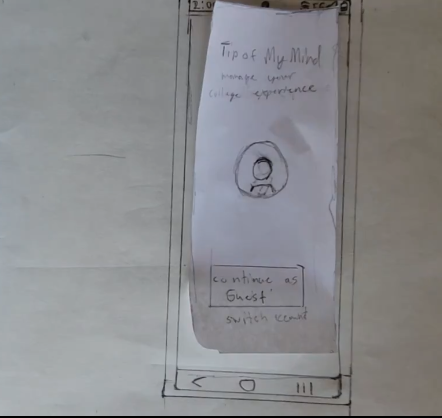 2:0
Tip of My Mind
manage your
college experience
continue as
Guest
switch